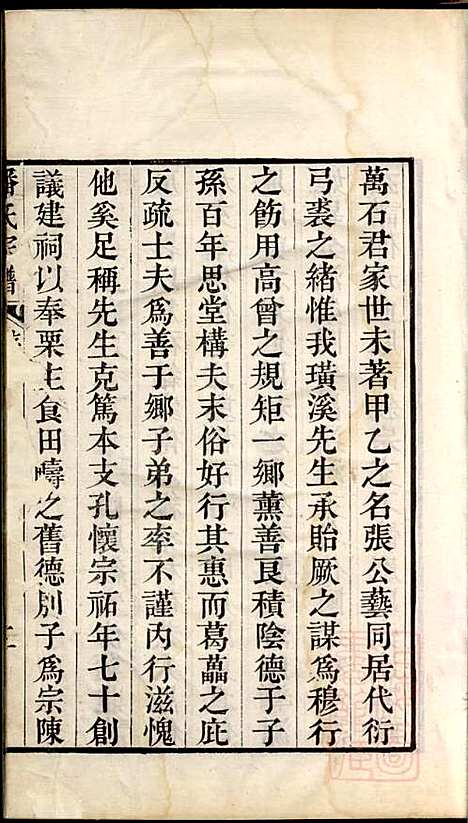 萬石君家世未著甲乙之名張公藝同居代衍
弓裘之緒惟我璜溪先生承貽厥之謀爲穆行
之飭用高曾之規矩一鄉薰善良積陰德于子
孫百年思堂構夫末俗好行其惠而葛藟之庇
反疏士夫爲善于鄉子弟之率不謹內行滋愧
他奚足稱先生克篤本支孔懷宗祐年七十創
議建祠以奉栗主食田疇之舊德別子爲宗陳
潘氏宗譜